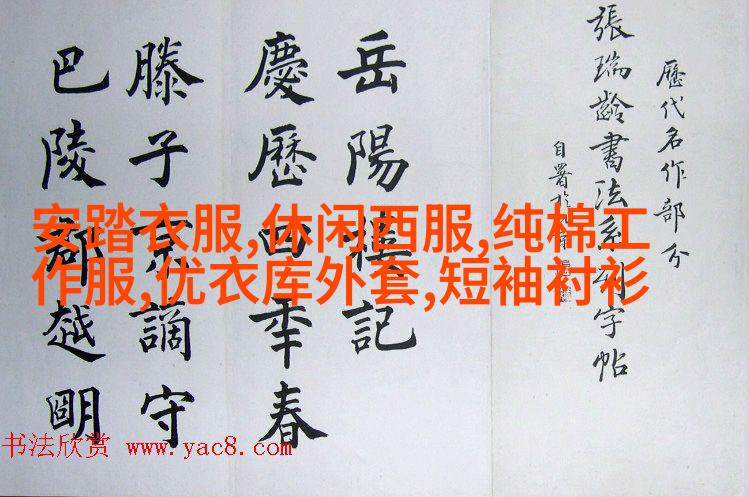 歷代名作部分
張瑞齡書法系列字帖
自署於
岳陽樓記
慶歷四年春
滕子京謫守
巴陵郡越明
安踏衣服,休闲西服,纯棉工
作服,优衣库外套,短袖衬衫
书法欣赏 www.yac8.com